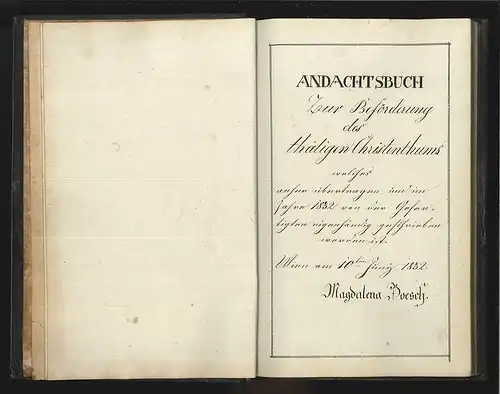 ANDACHTSBUCH
Zur Beförderung
des
thätigen Christenthums
welches
anher übertragen, und im
Jahre 1832 von der Gefer-
tigten eigenhändig geschrieben
worden ist.
Wien am 10ten Juny 1832.
Magdalena Boesch.